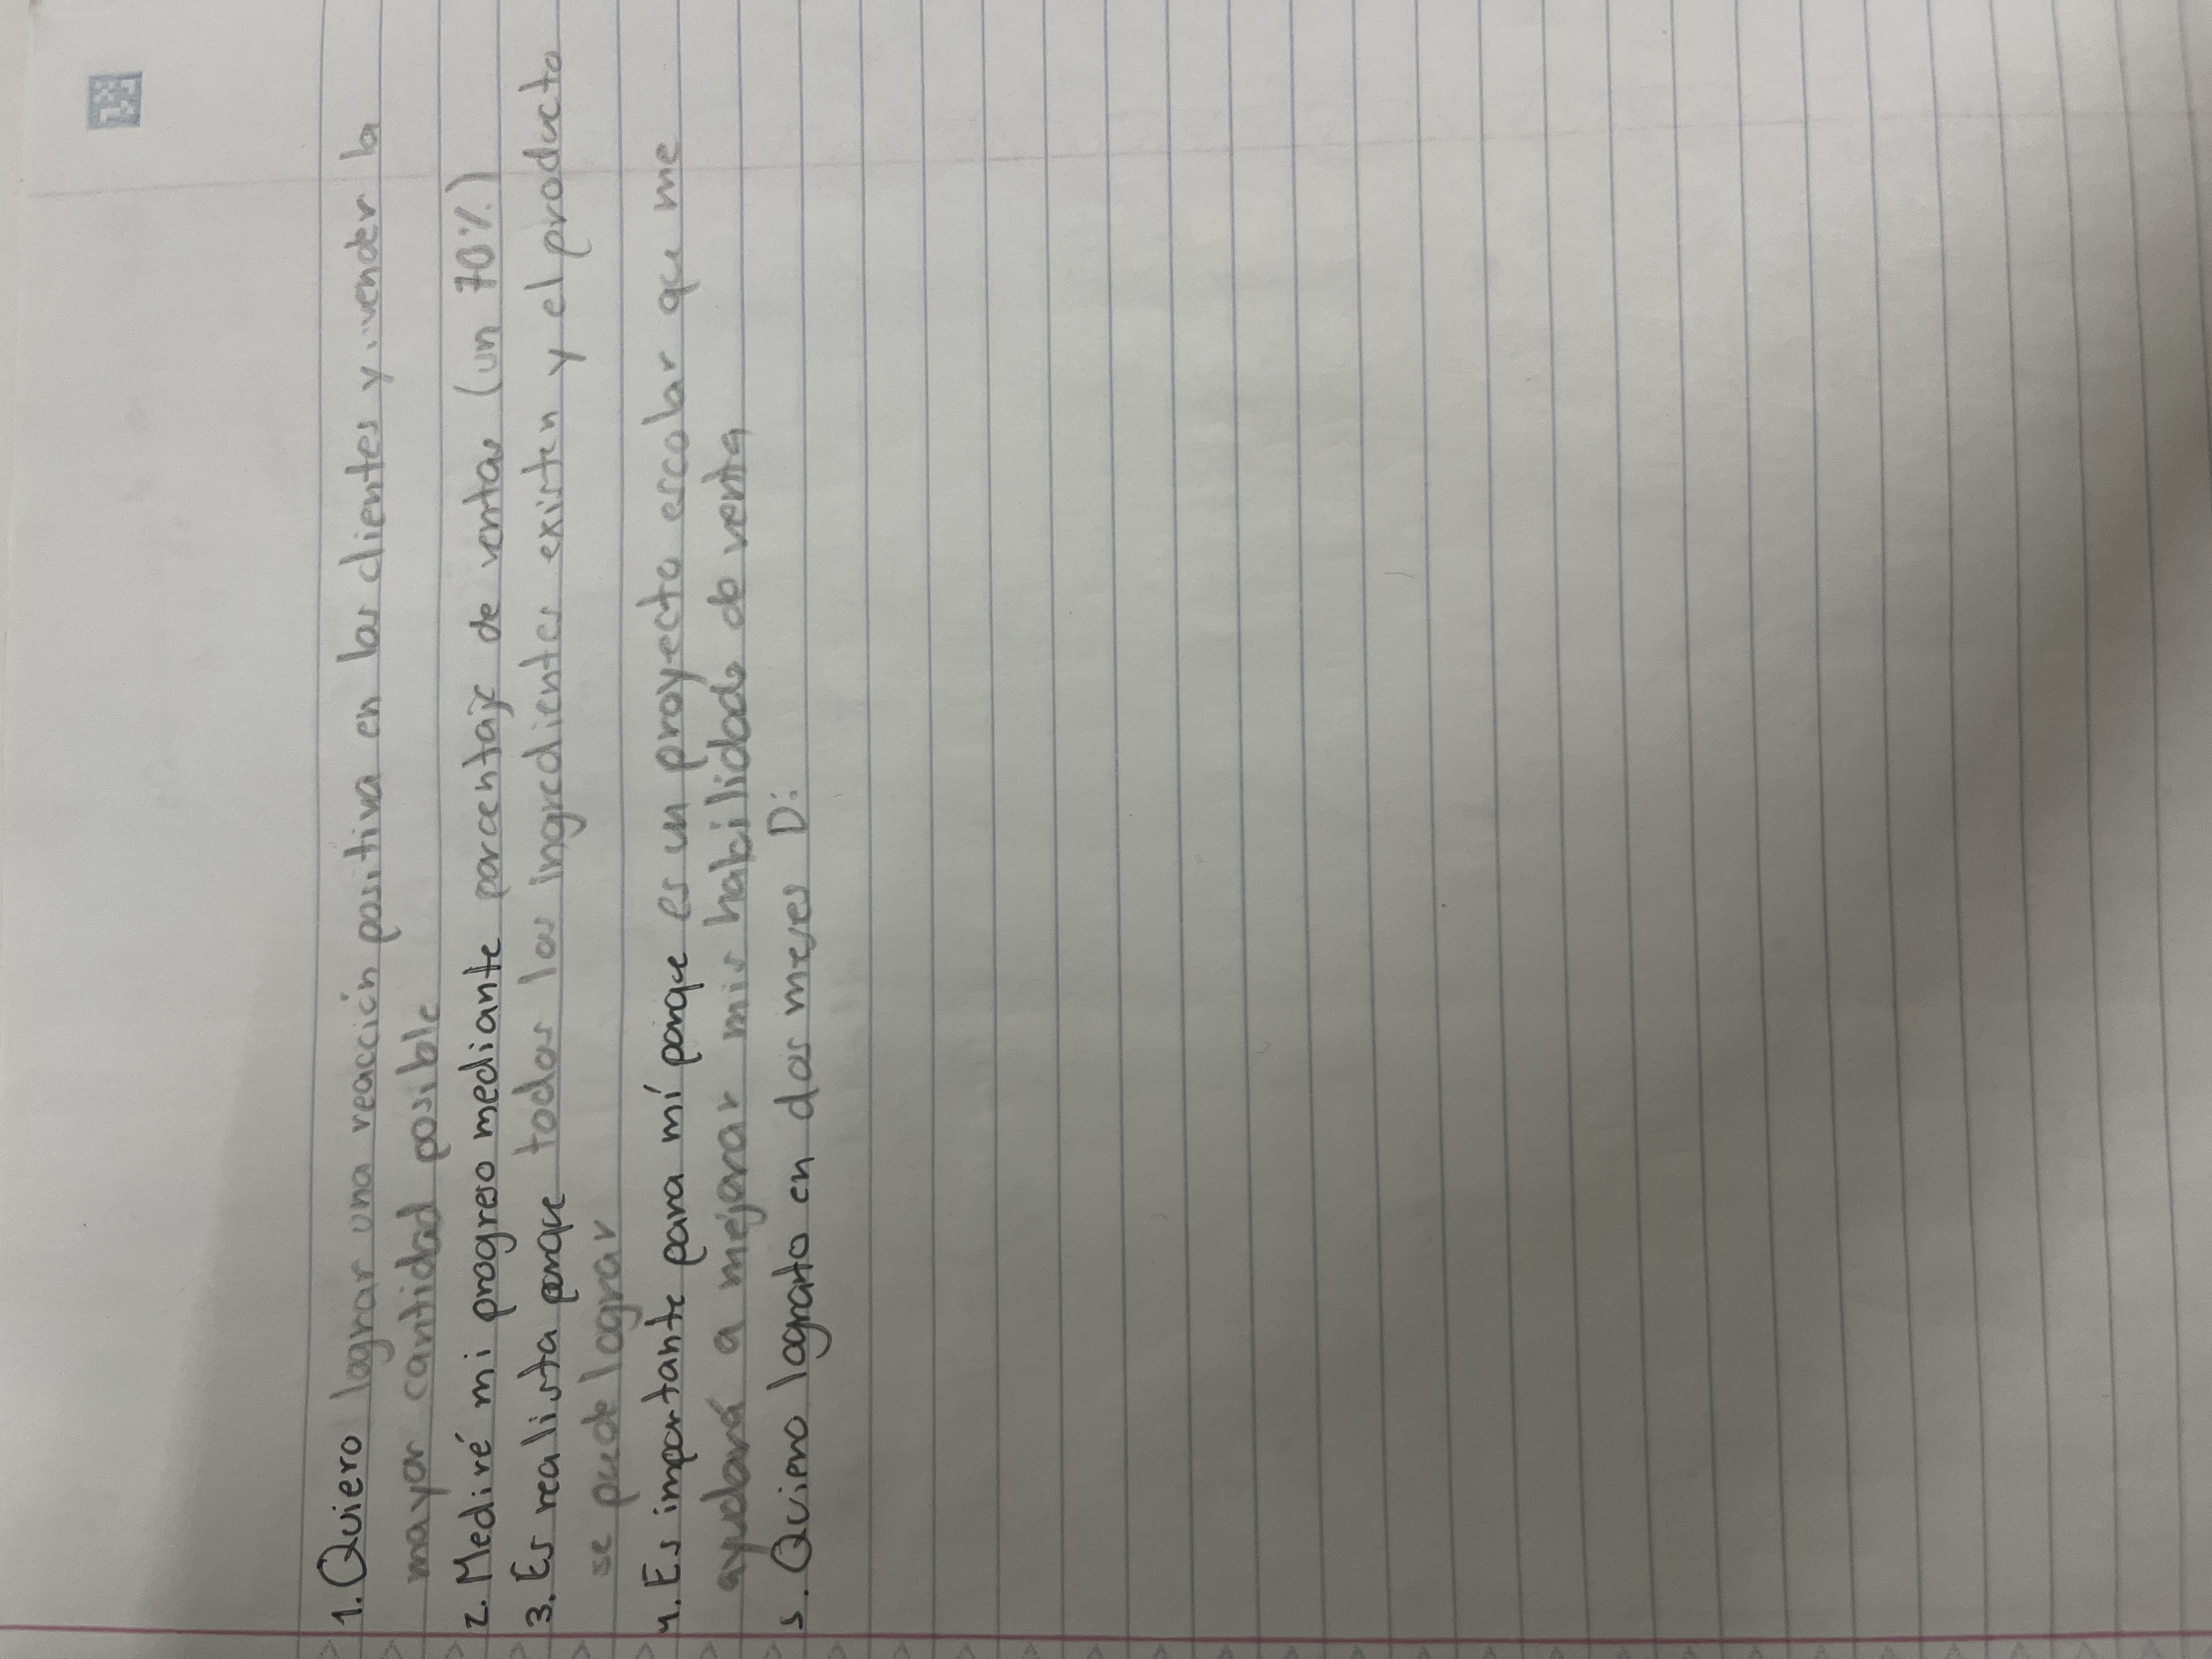 1. Quiero lograr una reacción positiva en los clientes y vender la
mayor cantidad posible
2. Mediré mi progreso mediante porcentaje de ventas (un 70%)
3. Es realista porque todos los ingredientes existen y el producto
se puede lograr
4. Es importante para mí porque es un proyecto escolar que me
ayudará a mejorar mis habilidads de venta
5. Quiero lograrlo en dos meses D: